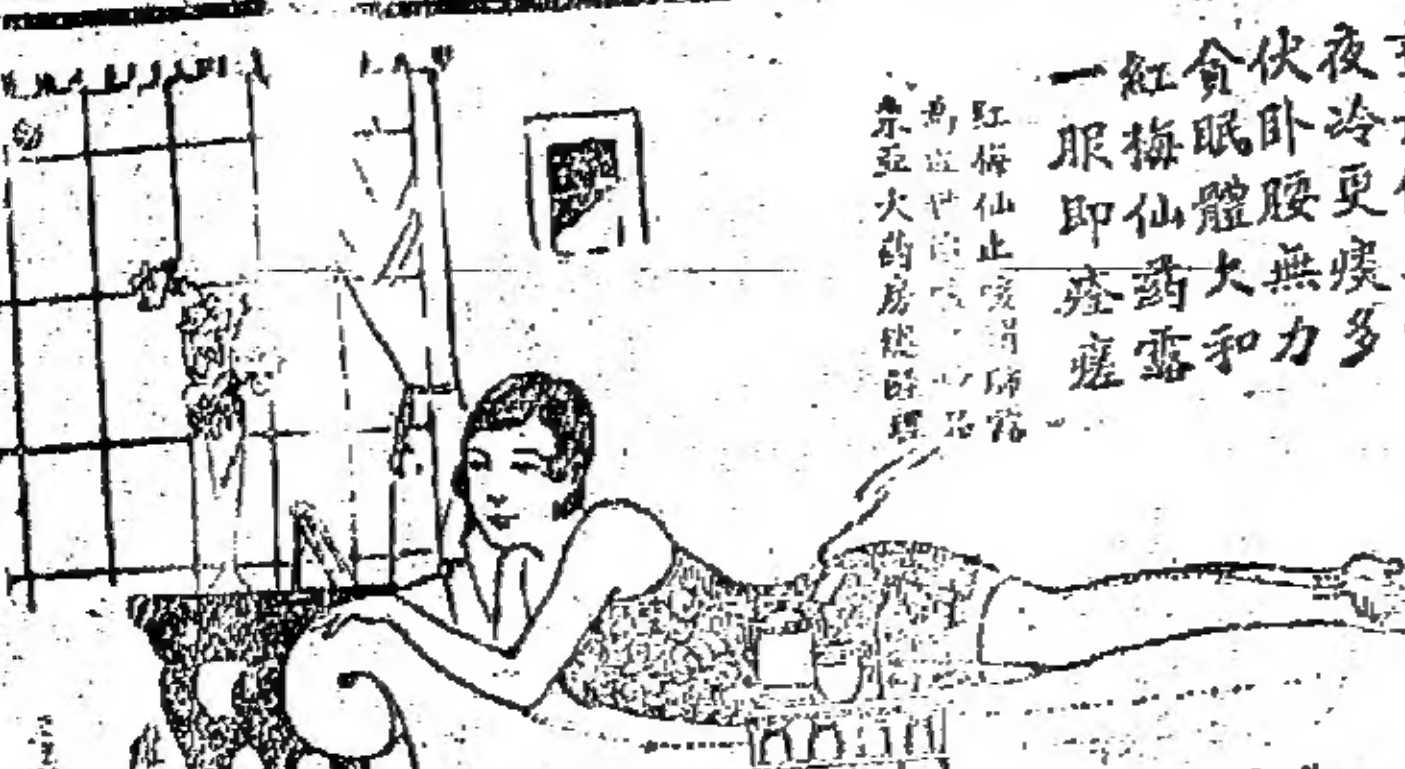 夜冷更痰多
伏卧腰無力
貪眠體欠和
紅梅仙葯露
一服即痊瘥
紅梅仙止咳潤肺露
咳
品
東亞大葯房總經理